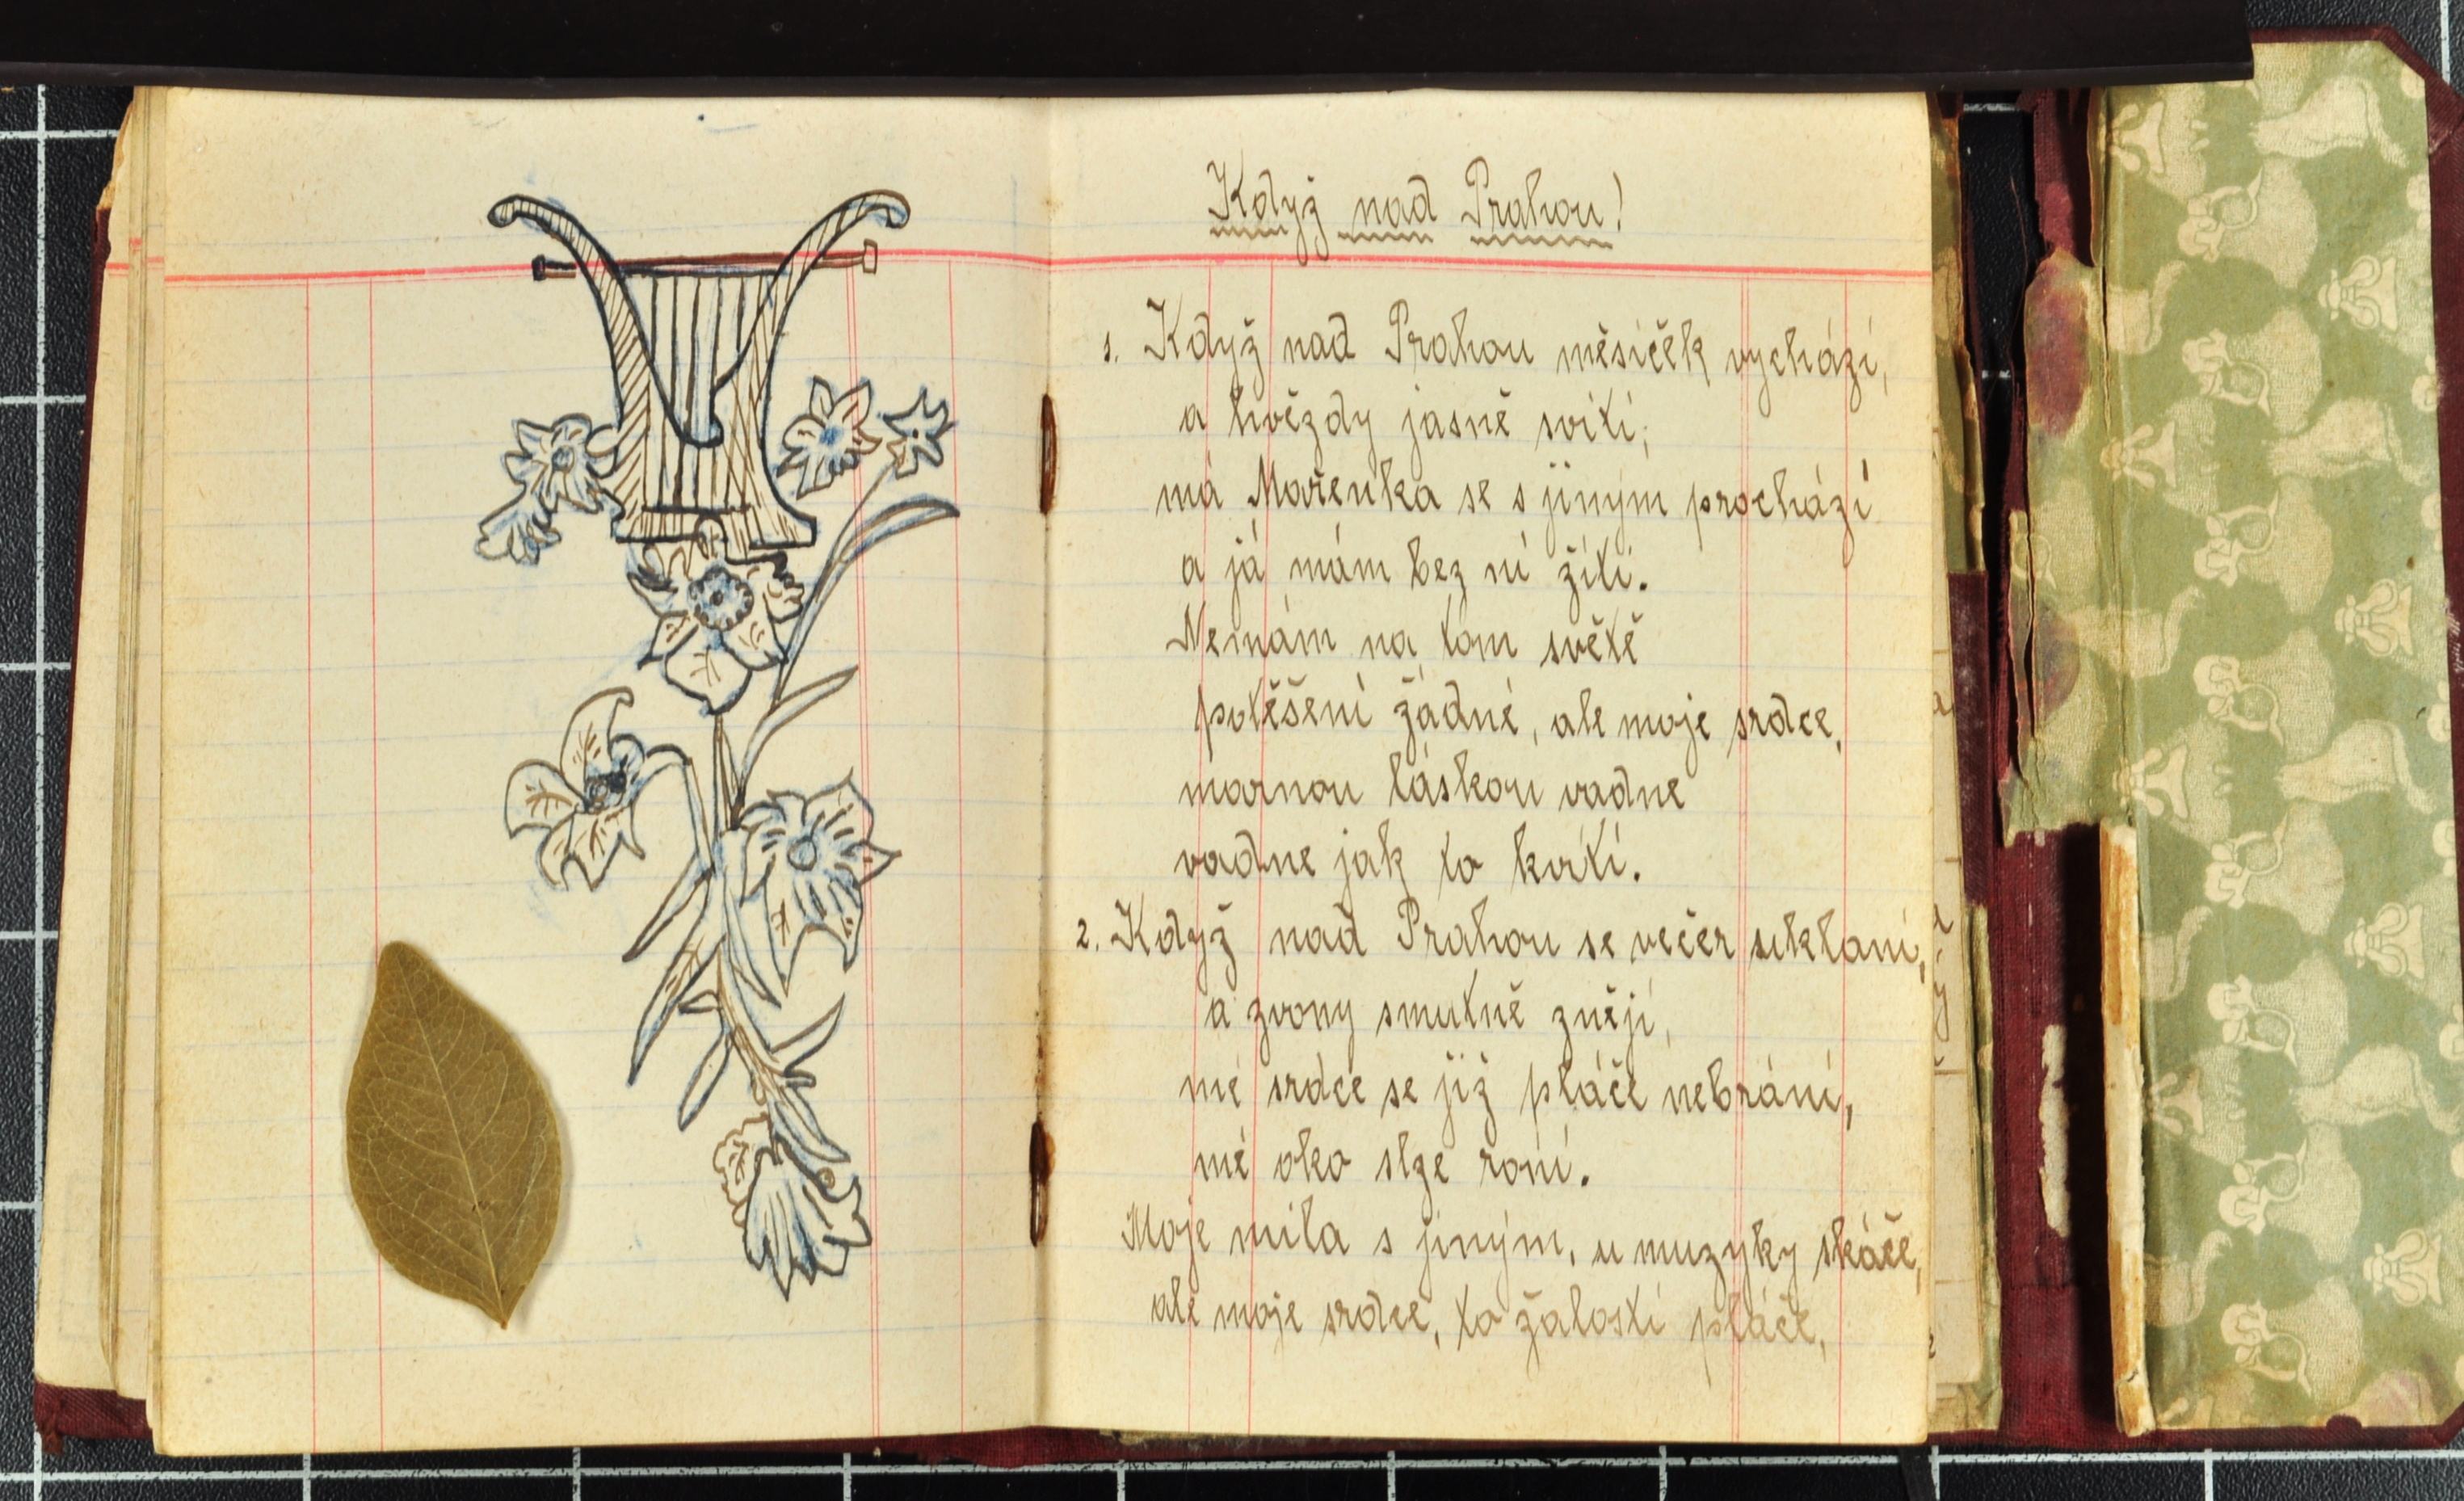 Když nad Prahou!
1. Když nad Prahou měsíček vychází,
a hvězdy jasně svítí;
má Mařenka se s jiným prochází
a já mám bez ní žíti.
Nemám na tom světě
potěšení žádné, ale moje srdce,
marnou láskou vadne
vadne jak to kvítí.
2. Když nad Prahou se večer sklání,
a zvony smutně znějí,
mé srdce se již pláče nebrání,
mé oko slze roní.
Moje milá s jiným, u muzyky skáče,
ale moje srdce, to žalostí pláče,